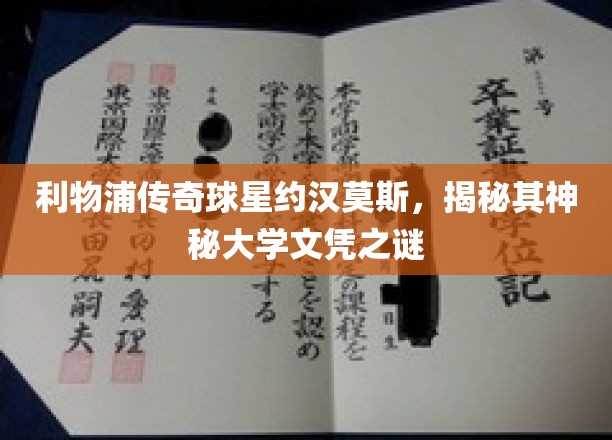 利物浦传奇球星约汉莫斯，揭秘其神
秘大学文凭之谜
第 号
卒業証 学位記
本学商学部 定の課程を
修めて本学 ことを認め
学士(商学)の する
日生
平成
東京国際大学 田村愛理
東京国際大 長田尻嗣夫